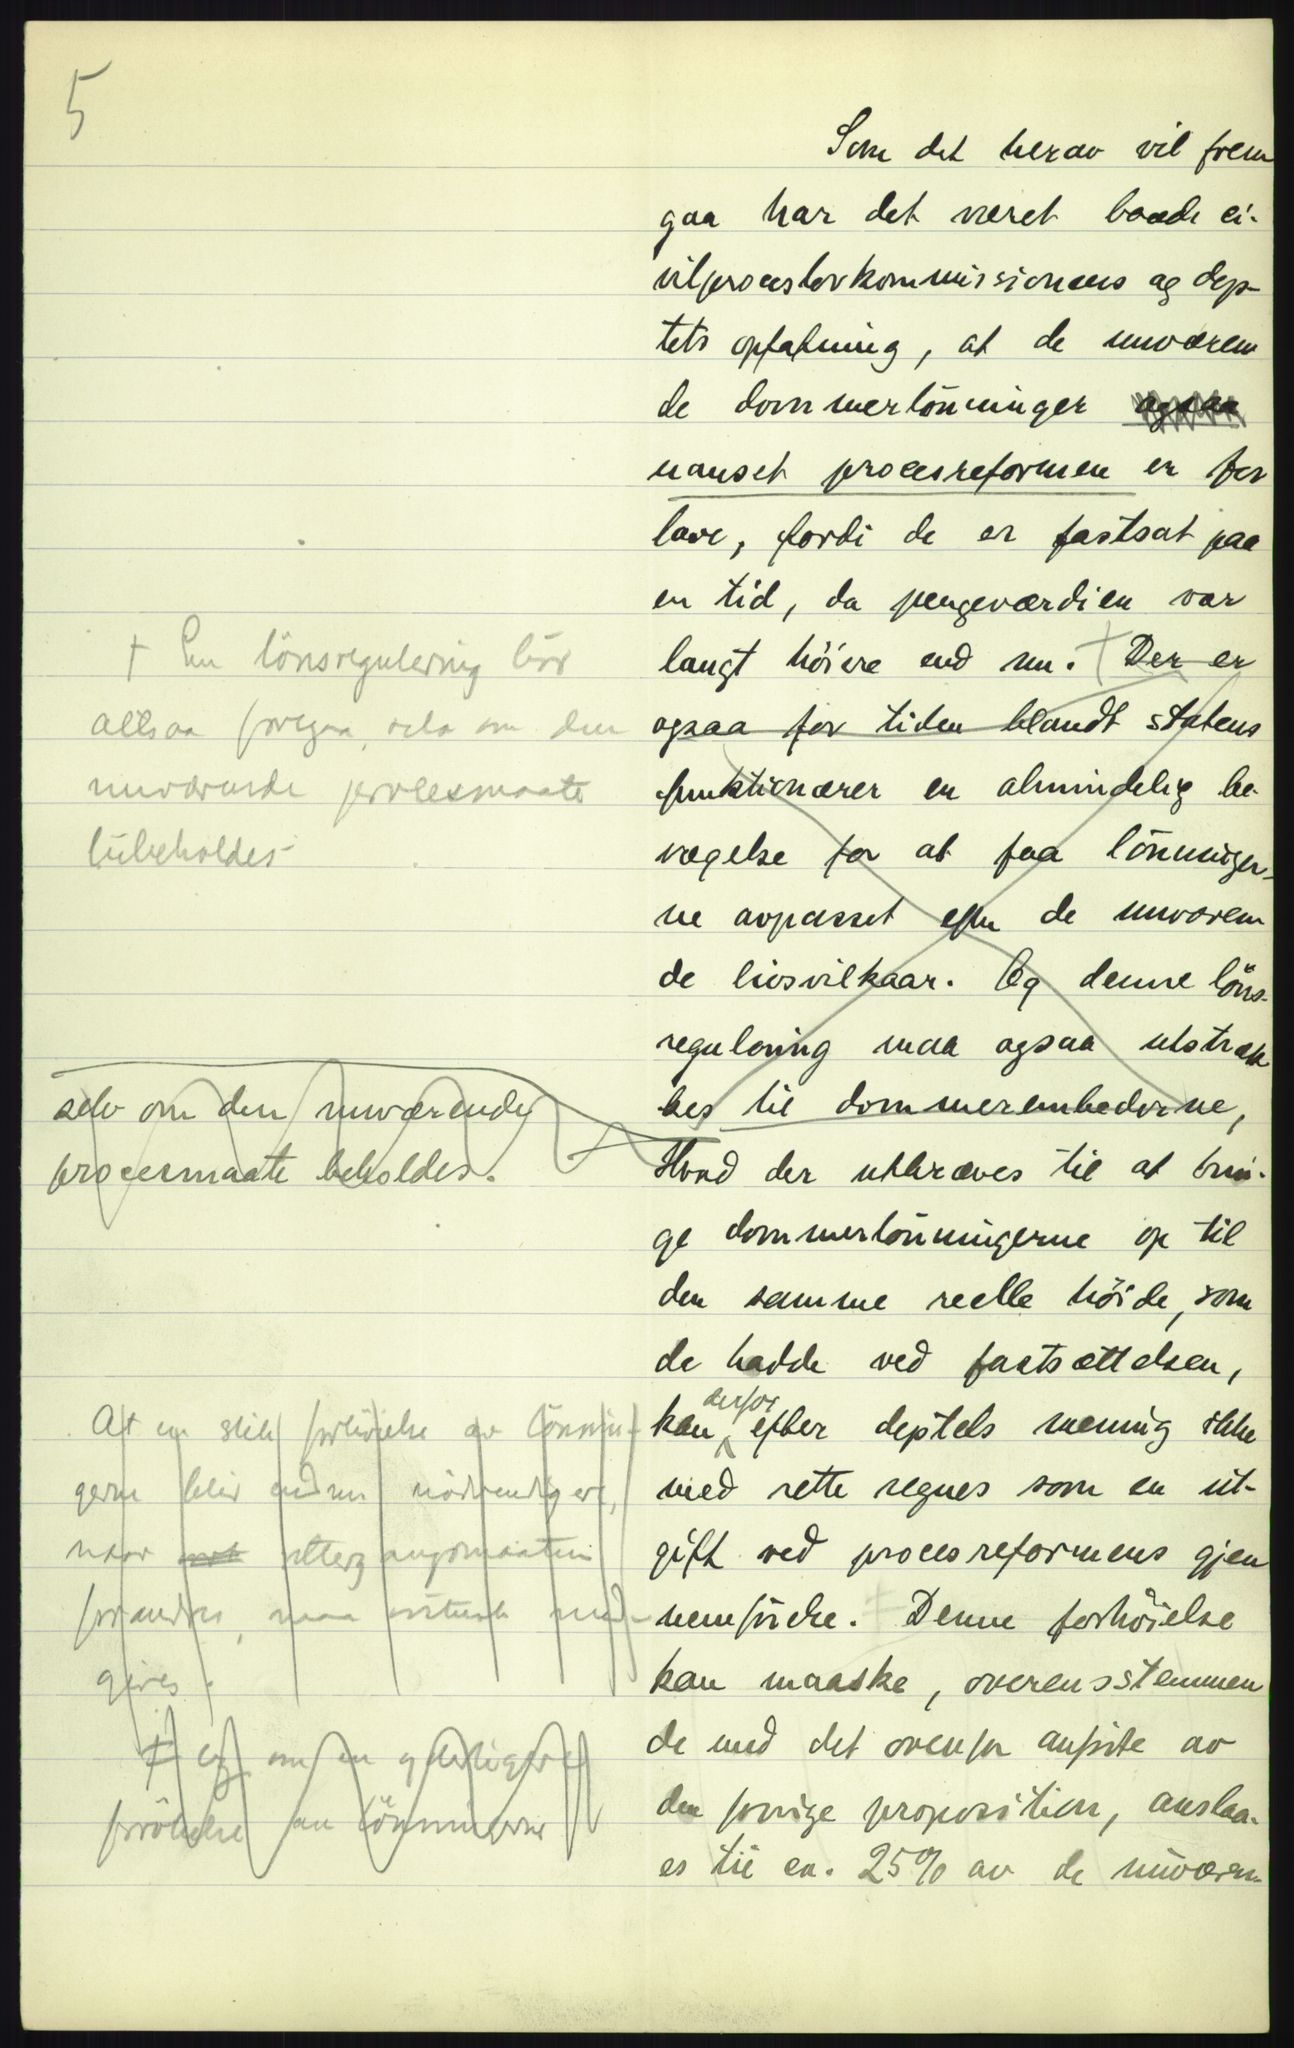 5
Som det herav vil frem
gaa har det været baade ci-
vilproceslovkommissionens og dep-
tets opfatning, at de nuværen
de dommerlönninger ogsaa
uanset procesreformen er for
lave, fordi de er fastsat paa
en tid, da pengeværdien var
langt höiere end nu. + Der er
ogsaa for tiden blandt statens
funktionærer en almindelig be-
vægelse for at faa lönninger-
ne avpasset efter de nuværen
de livsvilkaar. Og denne löns-
regulering maa ogsaa utstræk
kes til dommerembederne,
Hvad der utkræves til at brin-
ge dommerlönningerne op til
den samme reelle höide, som
de hadde ved fastsættelsen,
kan derfor efter deptets mening ikke
med rette regnes som en ut-
gift ved procesreformens gjen
nemförelse. Denne forhöielse
kan maaske, overensstemmen
de med det ovenfor anförte av
den forrige proposition, anslaa-
es til ca. 25% av de nuværen-
+ En lönsregulering bör
altsaa foregaa, selv om den
nuværende procesmaate
bibeholdes
selv om den nuværende
procesmaate beholdes.
At en slik forhöielse av lönnin-
gerne blir endnu nödvendigere,
naar rettergangsmaaten
forandres, maa med-
gives.
+ om en yderligere
lönningerne